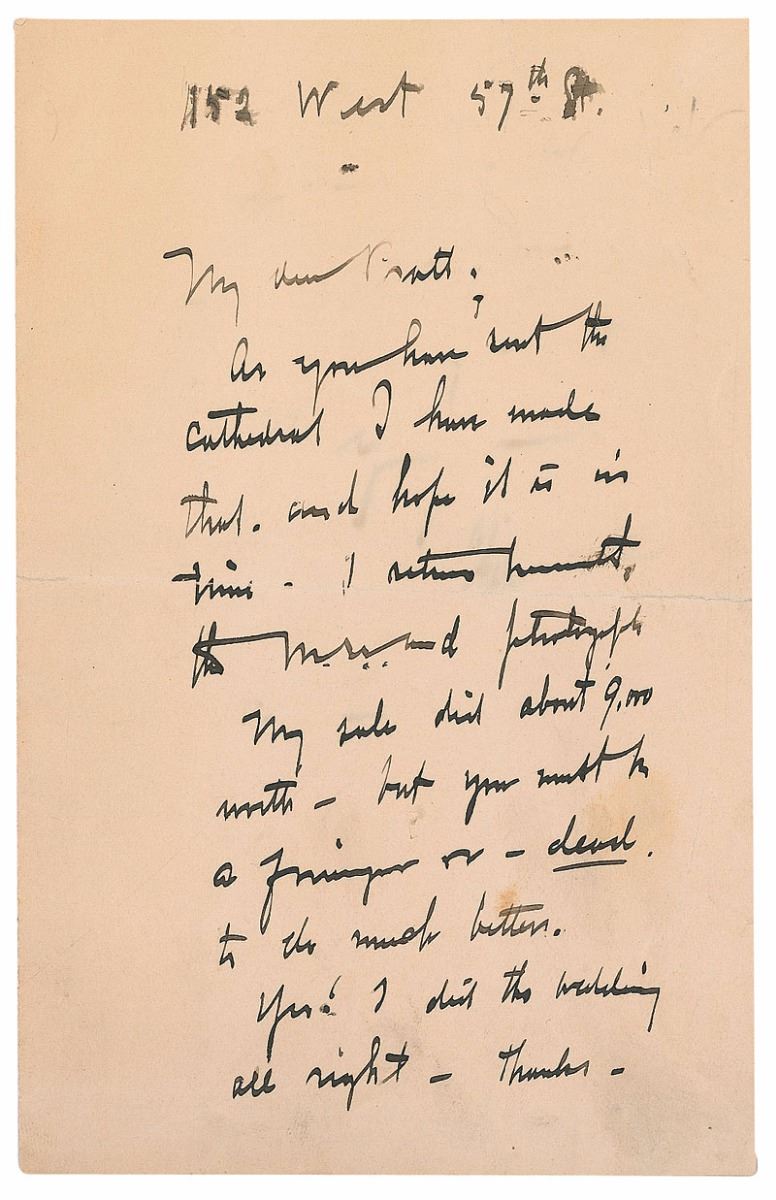 152 West 57th St.
My dear Pratt:
As you have sent the
cathedral I have made
that. and hope it is in
time - I return herewith,
the M.S.S. and photograph
My sale did about 9,000
worth - but you must be
a foreigner or - dead.
to do much better.
Yes! I did the wedding
all right - thanks -